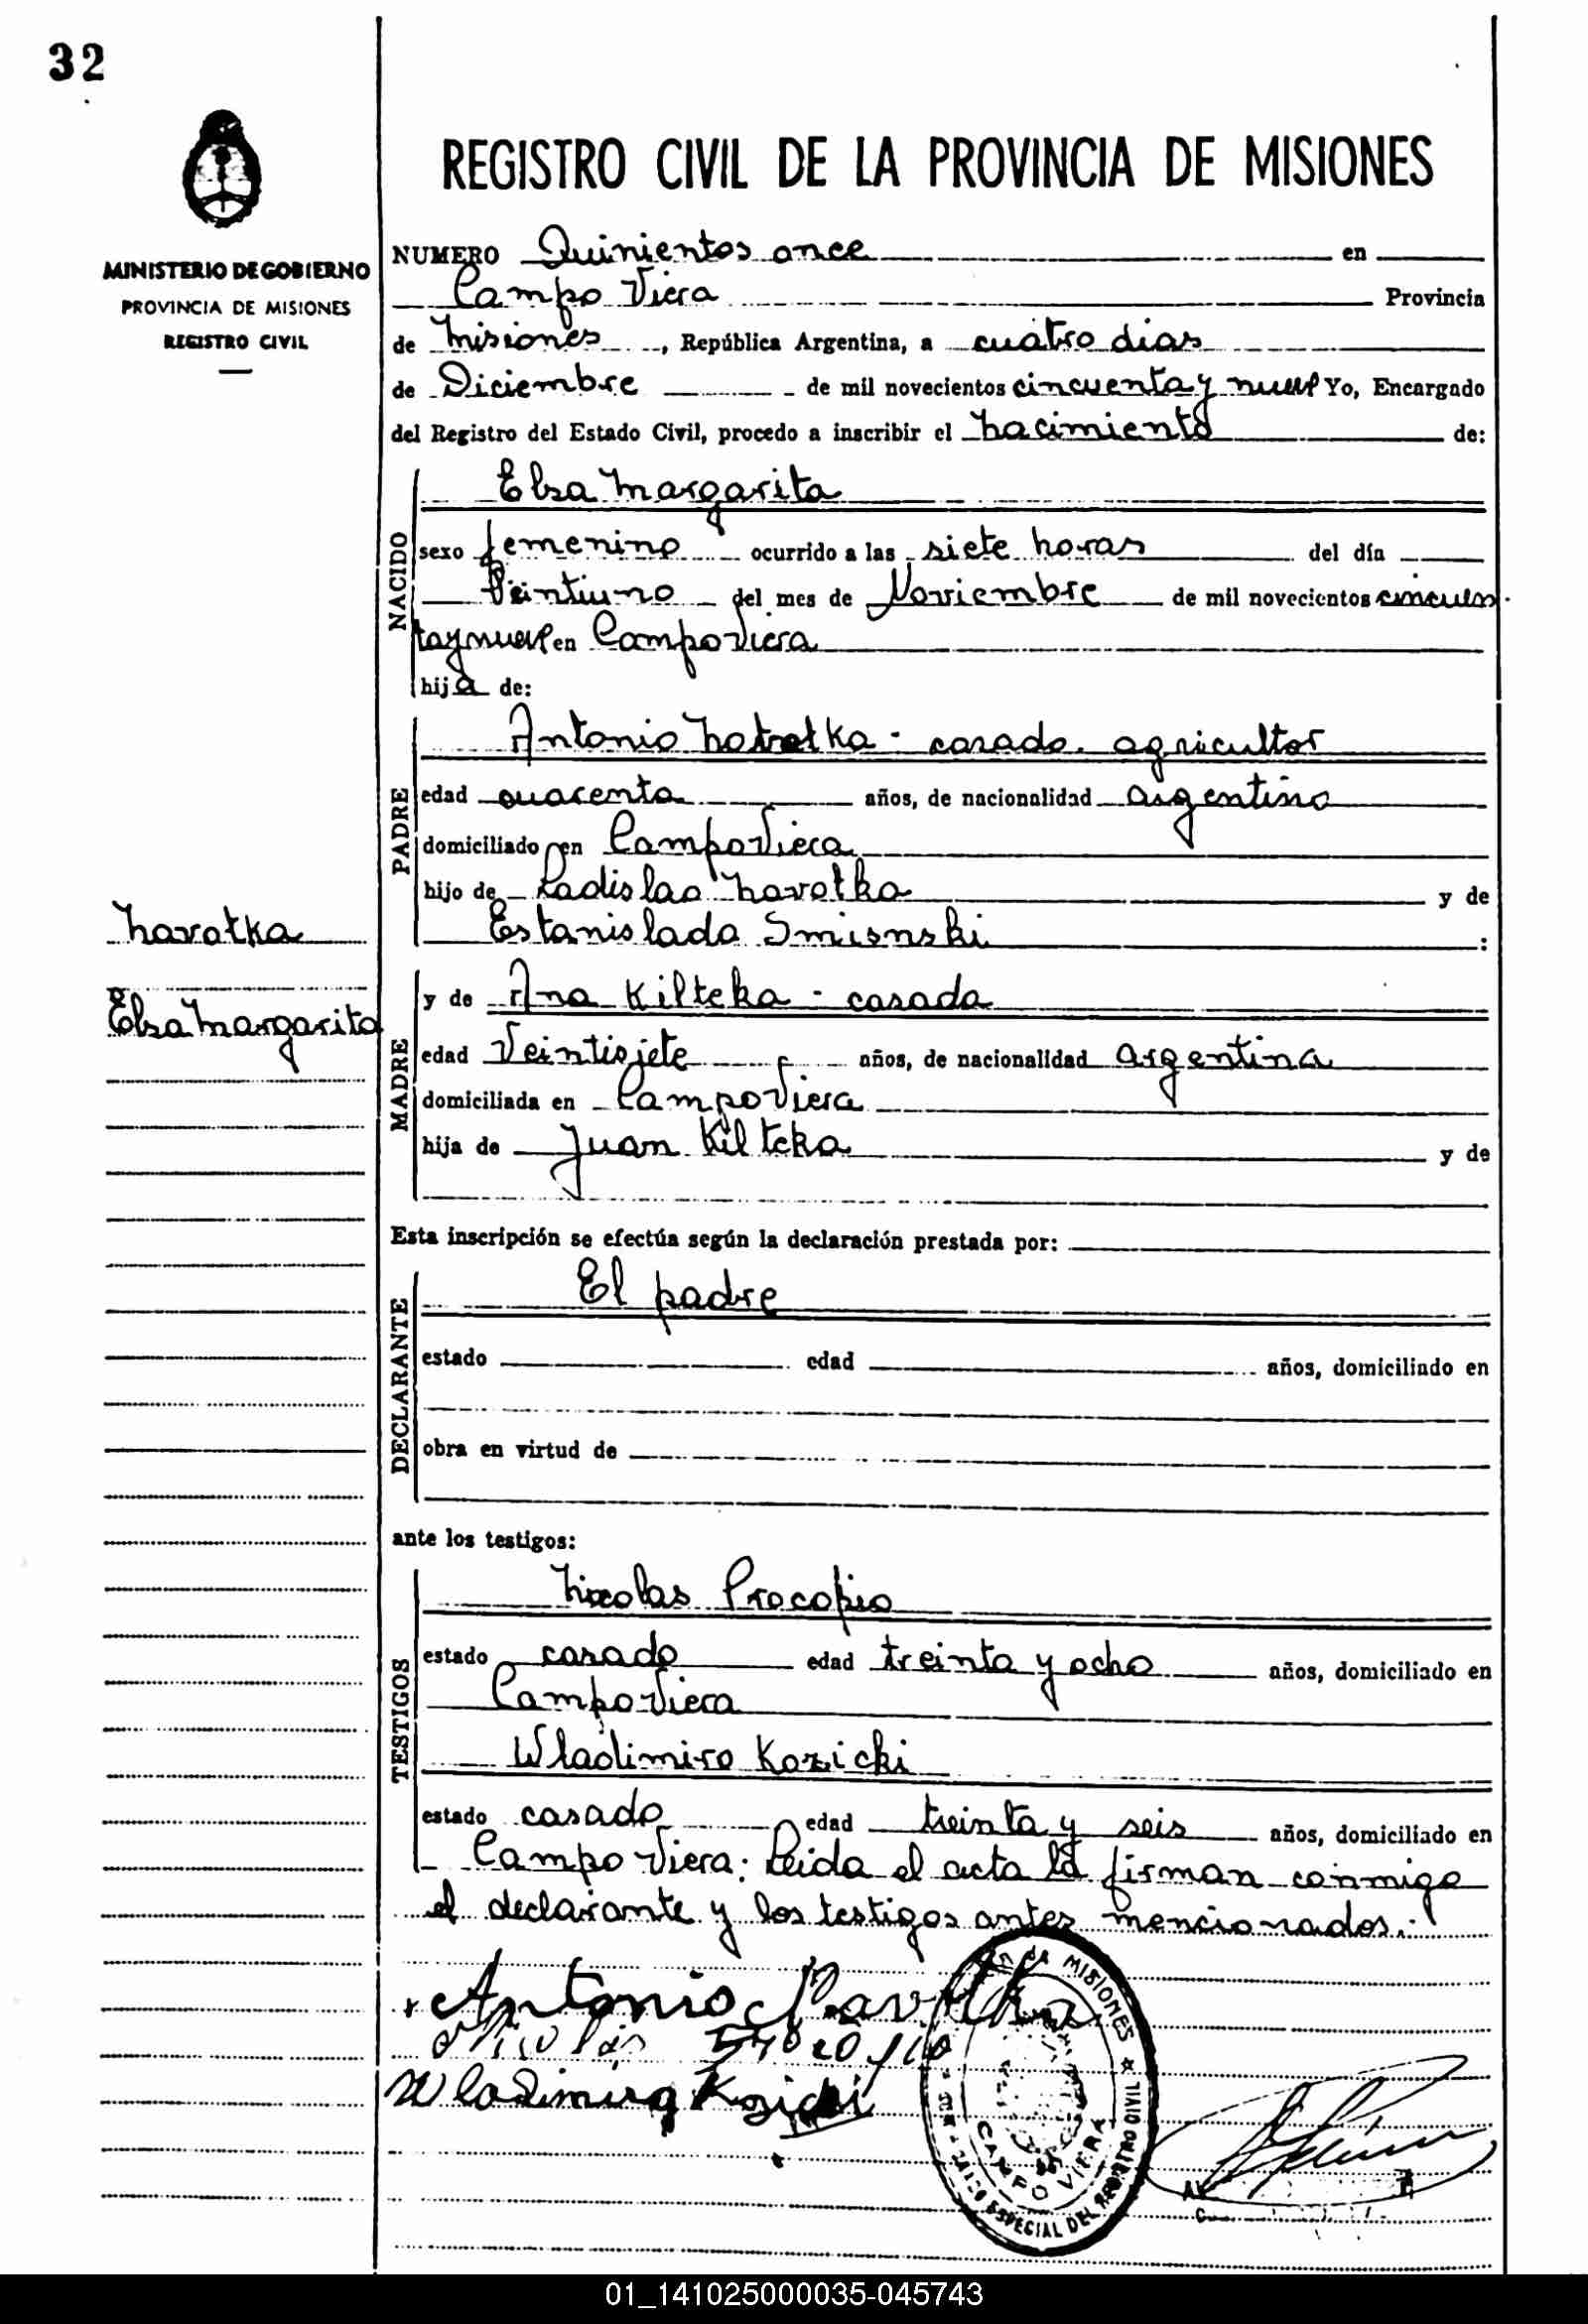 32
MINISTERIO DE GOBIERNO
PROVINCIA DE MISIONES
REGISTRO CIVIL
REGISTRO CIVIL DE LA PROVINCIA DE MISIONES
NUMERO Quinientos once en
Campo Viera Provincia
de Misiones, República Argentina, a cuatro dias
de Diciembre de mil novecientos cincuenta y nueve Yo, Encargado
del Registro del Estado Civil, procedo a inscribir el nacimiento de:
NACIDO
Elsa Margarita
sexo femenino ocurrido a las siete horas del día
Veintiuno del mes de Noviembre de mil novecientos cincuen
ta y nueve en Campo Viera
hija de:
PADRE
Antonio Navotka - casado. agricultor
edad cuarenta años, de nacionalidad argentino
domiciliado en Campo Viera
hijo de Ladislao Navotka y de
Estanislada Smisnski :
Navotka
Elsa Margarita
MADRE
y de Ana Kilteka - casada
edad Veintisiete años, de nacionalidad argentina
domiciliada en Campo Viera
hija de Juan Kilteka y de
Esta inscripción se efectúa según la declaración prestada por:
DECLARANTE
El padre
estado edad años, domiciliado en
obra en virtud de
ante los testigos:
TESTIGOS
Nicolas Procopio
estado casado edad treinta y ocho años, domiciliado en
Campo Viera
Wladimiro Kozicki
estado casado edad treinta y seis años, domiciliado en
Campo Viera: Leida el acta la firman conmigo
el declarante y los testigos antes mencionados.
Antonio Navotka
Nicolás
Wladimiro Kozicki
MISIONES
CAMPO VIERA
ESPECIAL DEL REGISTRO CIVIL
01_141025000035-045743